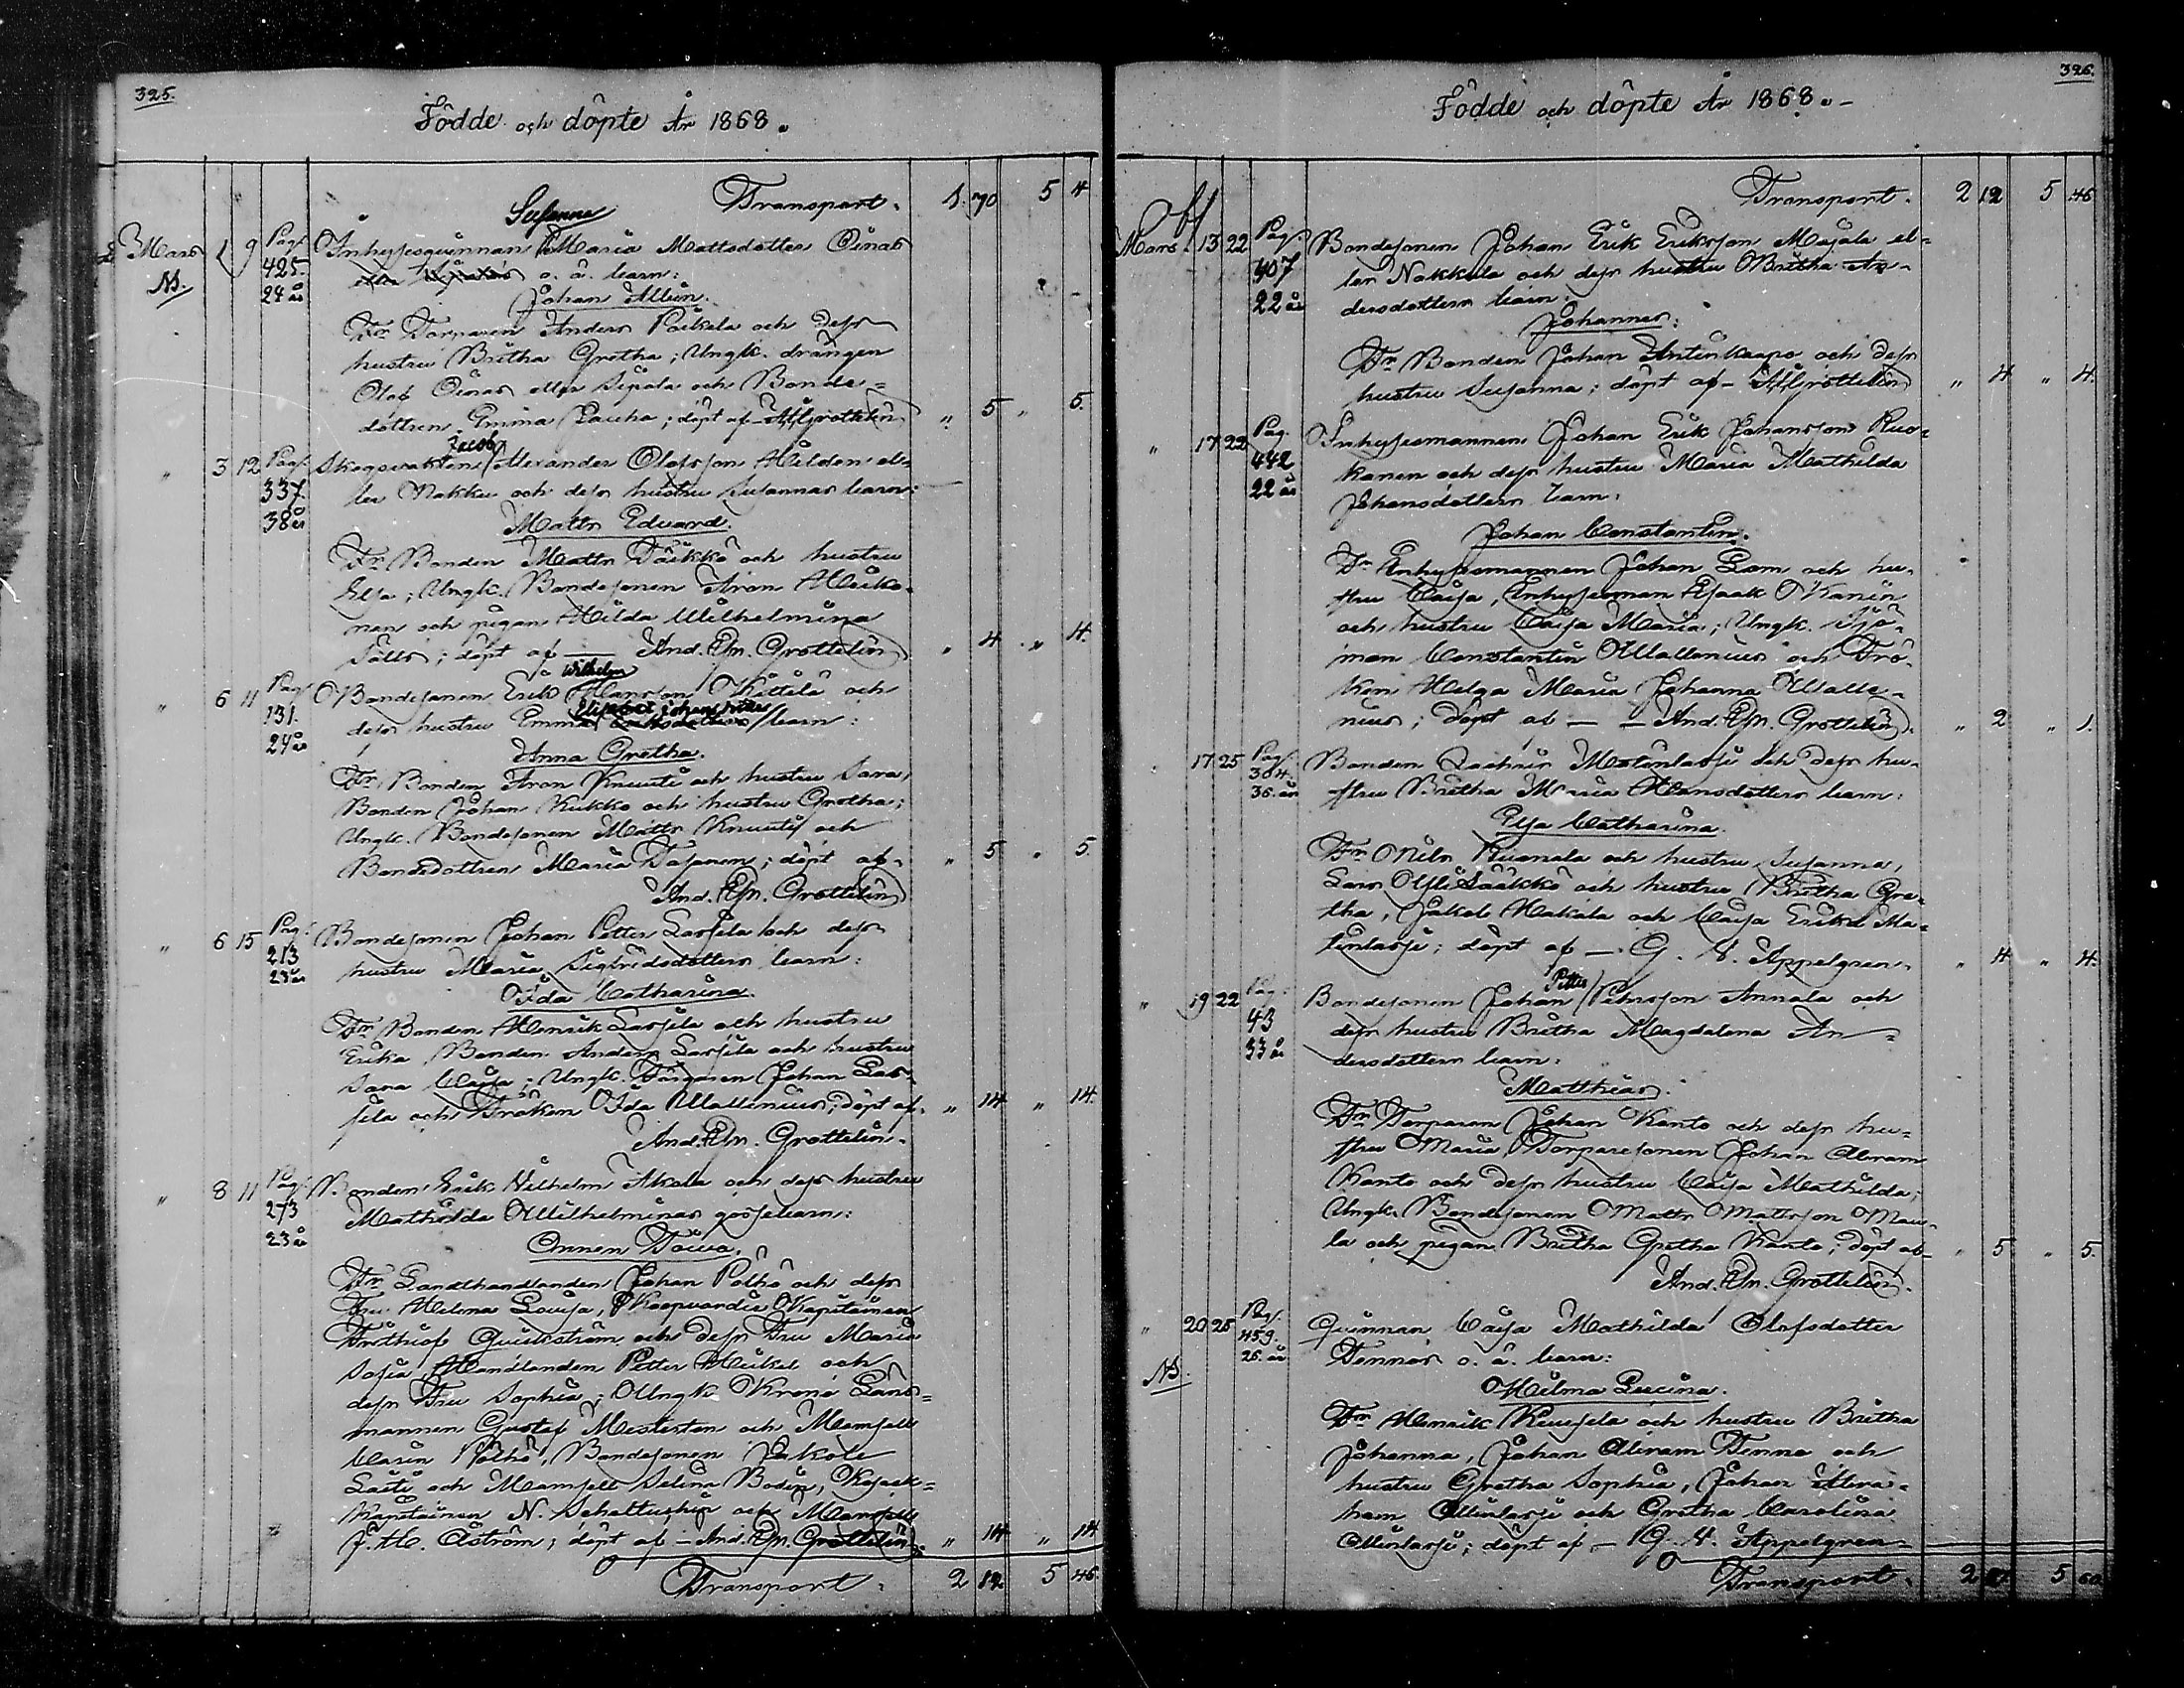 325.
Födde och döpte År 1868.
Transport. 1. 70 5 4
Susanna
Mars 1 9 Pag. Inhysesqvinnan Maria Mattsdotter Oinas
Ns. 425. o. ä. barn:
24 år Johan Albin.
Fr. Torparen Anders Poikela och dess
hustru Britha Gretha; Ungk. drängen
Olof Oinas eller Sipola och Bonde-
dottren Emma ; döpt af - Grottelin " 5 " 5.
Jacob
" 3 12 Pag. Skogsvakten Alexander Olofsson Helden el-
337. ler Nakku och dess hustru Susannas barn:
38 år Matts Eduard.
Fr. Bonden Matts och hustru
Elsa; Ungk. Bondesonen Aron Heiko-
nen och pigan Hilda Wilhelmina
; döpt af — And. Joh. Grottelin " 4 " 4.
Wilhelm
" 6 11 Pag. Bondesonen Erik Hansson Kittilä och
Elisabet Johansdotters
131. dess hustru Emma Eriksdotters barn:
24 år Anna Gretha.
Fr. Bonden Aron Knuuti och hustru Sara,
Bonden Johan Kukko och hustru Gretha;
Ungk. Bondesonen Matts Knuuti och
Bondedottren Maria ; döpt af - " 5 " 5.
And. Joh. Grottelin
" 6 15 Pag. Bondesonen Johan Petter Lassila och dess
213 hustru Maria Sigfridsdotters barn:
23 år Ida Catharina.
Fr. Bonden Henrik Lassila och hustru
Erika, Bonden Anders Lassila och hustru
Sara Caisa; Ungk. Johan Las-
sila och Fröken Ida Wallenius; döpt af " 14 " 14.
And. Joh. Grottelin.
" 8 11 Pag. Bonden Erik Wilhelm Akola och dess hustru
273 Mathilda Wilhelminas gossebarn:
23 år Onnen Toiwo.
Fr. Landthandlanden Johan Pölhö och dess
Fru Helena Lovisa, Koopvardie Kapitainen
Frithiof Qvickström och dess Fru Maria
Sofia, Handlanden Petter Heikel och
dess Fru Sophia; Ungk. Krono Läns-
mannen Gustaf Mesterton och Mamsell
Carin Pölhö, Bondesonen Jakob
Laiti och Mamsell Selina Bodin, Kosack-
kapitainen N. Schaltuchin och Mamsell
J. H. Åström; döpt af - And. Joh. Grottelin " 14 " 14
Transport. 2 12 5 46.
326.
Födde och döpte År 1868.-
Transport. 2 12 5 46
Mars. 13 22 Pag. Bondesonen Johan Erik Eriksson Majala el-
407 ler Nakkula och dess hustru Britha An-
22 år dersdotters barn:
Johannes:
Fr. Bonden Johan Antinkaapo och dess
hustru Susanna; döpt af - Grottelin " 4 " 4.
" 17 22 Pag. Inhysesmannen Johan Erik Johansson Ruo-
442 kanen och dess hustru Maria Mathilda
22 år Johansdotters barn:
Johan Constantin.
Fr. Inhysesmannen Johan Lam och hu-
stru Caisa, Inhysesman Isaak Kanin
och hustru Caisa Maria; Ungk. Sjö-
man Constantin Wallenius och Frö-
ken Helga Maria Johanna Walle-
nius; döpt af — — And. Joh. Grottelin. " 2 " 1.
17 25 Pag. Bonden Zachris Matinlassi och dess hu-
304. stru Britha Maria Hansdotters barn:
36. år Elsa Catharina.
Fr. Nils Ruonala och hustru Susanna,
Lars Yli Sääkkö och hustru Britha Gre-
tha, Jakob Hakala och Caisa Erika Ma-
tinlassi; döpt af — G. A. Appelgren. " 4 " 4.
Petter
" 19 22 Pag. Bondesonen Johan Pehrsson Annala och
43 dess hustru Britha Magdalena An-
33 år dersdotters barn:
Matthias.
Fr. Torparen Johan Kanto och dess hu-
stru Maria, Torparesonen Johan Abram
Kanto och dess hustru Caisa Mathilda;
Ungk. Bondesonen Matts Mattsson Mau-
la och pigan Britha Gretha Kanto; döpt af- " 5 " 5.
And. Joh. Grottelin.
" 20 25 Pag. Qvinnan Caisa Mathilda Olofsdotter
459. Tennos o. ä. barn:
Ns. 26. år
Hilma Lucina.
Fr. Henrik Kuusela och hustru Britha
Johanna, Johan Abram Tenno och
hustru Gretha Sophia, Johan Abra-
ham Ollinlassi och Gretha Carolina
Ollinlassi; döpt af - G. A. Appelgren
Transport. 2 5 60.